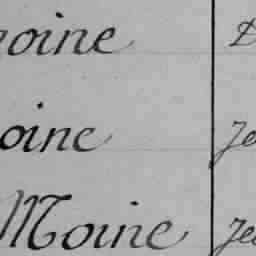 oine D
oine Je
Moine Je